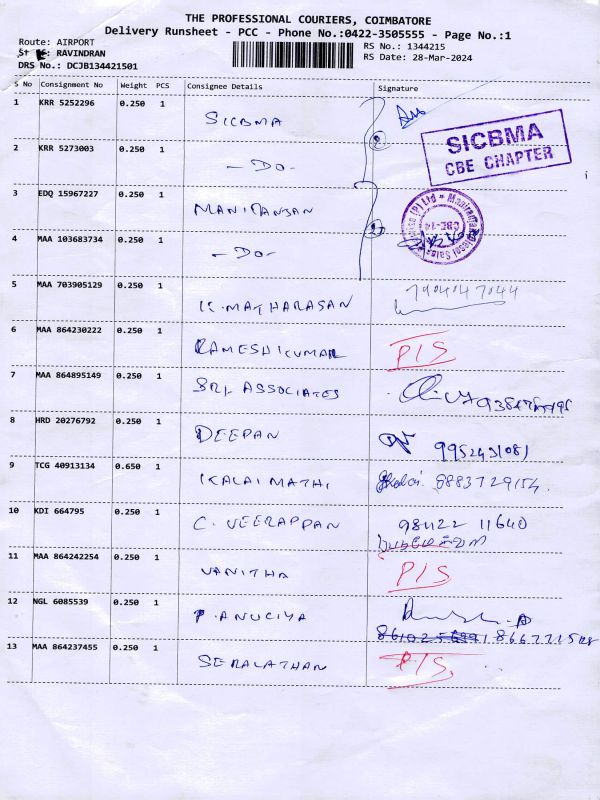 THE PROFESSIONAL COURIERS, COIMBATORE
Delivery Runsheet - PCC - Phone No.:0422-3505555 - Page No.:1
Route: AIRPORT
RS No.: 1344215
RAVINDRAN
RS Date: 28-Mar-2024
DRS No.: DCJB134421501
S No Consignment No Weight PCS Consignee Details Signature
1 KRR 5252296 0.250 1 SICBMA
SICBMA
CBE CHAPTER
2 KRR 5273003 0.250 1 -DO-
3 EDQ 15967227 0.250 1 MANIMANJAN
4 MAA 103683734 0.250 1 -DO-
CBE-14
5 MAA 703905129 0.250 1 K.MATHARASAN 7904047044
6 MAA 864230222 0.250 1 RAMESHKUMAR P/S
7 MAA 864895149 0.250 1 SRI ASSOCIATES
8 HRD 20276792 0.250 1 DEEPAN 9952431081
9 TCG 40913134 0.650 1 KALAIMATHI 8883729154
10 KDI 664795 0.250 1 C. VEERAPPAN 98422 11640
11 MAA 864242254 0.250 1 VANITHA P/S
12 NGL 6085539 0.250 1 P.ANUCIYA
13 MAA 864237455 0.250 1 SERALATHAN P/S